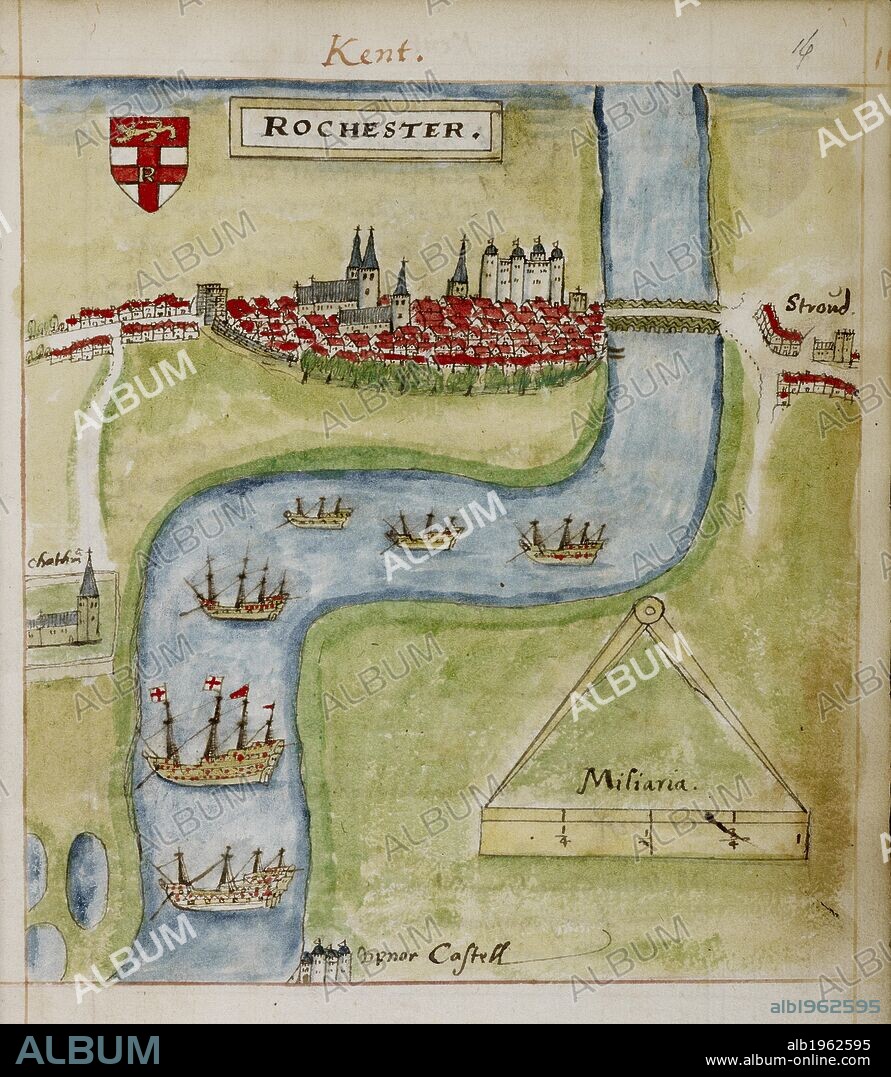 Kent.
16
ROCHESTER.
R
Stroud.
Chathm
Miliaria.
1/4
1/2
3/4
1
Vpnor Castell
ALBUM
alb1962595
ALBUM
alb1962595
www.album-online.com